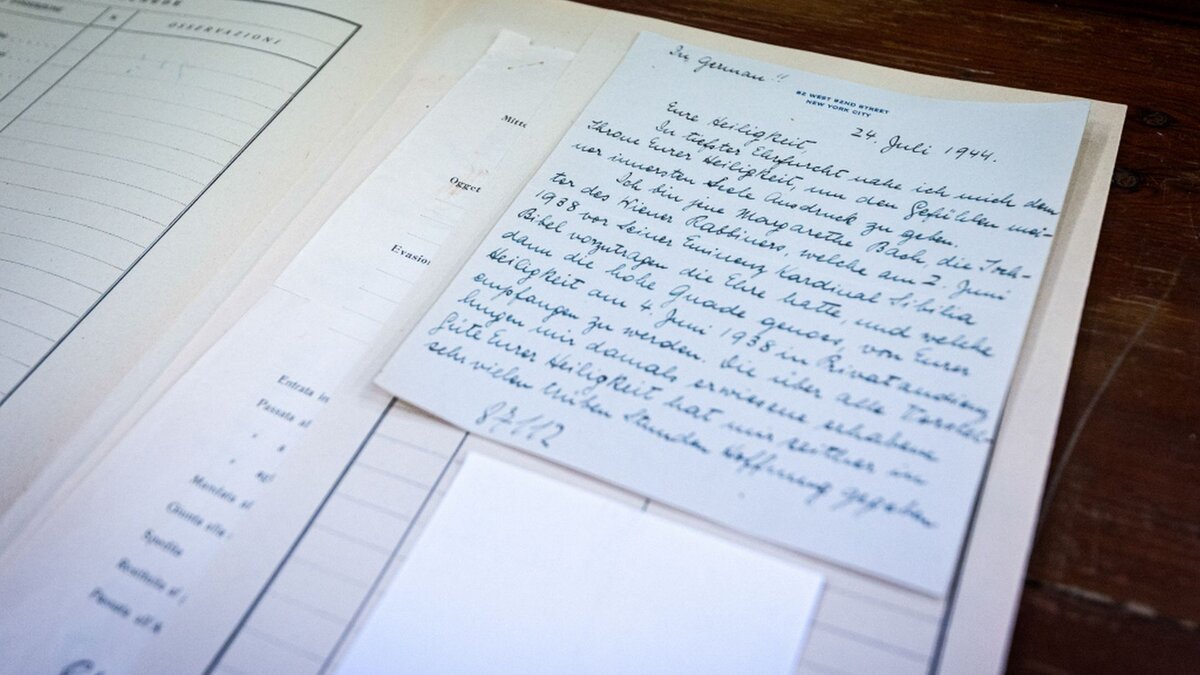 OSSERVAZIONI
Mitte
Ogget
Evasio
Entrata in
Passata al
Mandata al
Giunta alla
Spedita
Restituita al
Passata all'
In German!!
WEST 82ND STREET
NEW YORK CITY
24. Juli 1944.
Eure Heiligkeit,
In tiefster Ehrfurcht nahe ich mich dem
Throne Eurer Heiligkeit, um den Gefühlen mei-
ner innersten Seele Ausdruck zu geben.
Ich bin jene Margarethe Bach, die Toch-
ter des Wiener Rabbiners, welche am 2. Juni
1938 vor Seiner Eminenz Kardinal Sibilia
Bibel vorzutragen die Ehre hatte, und welche
dann die hohe Gnade genoss, von Eurer
Heiligkeit am 4. Juni 1938 in Privataudienz
empfangen zu werden. Die über alle Vorstel-
lungen mir damals erwiesene erhabene
Güte Eurer Heiligkeit hat mir seither in
sehr vielen trüben Stunden Hoffnung gegeben
87112